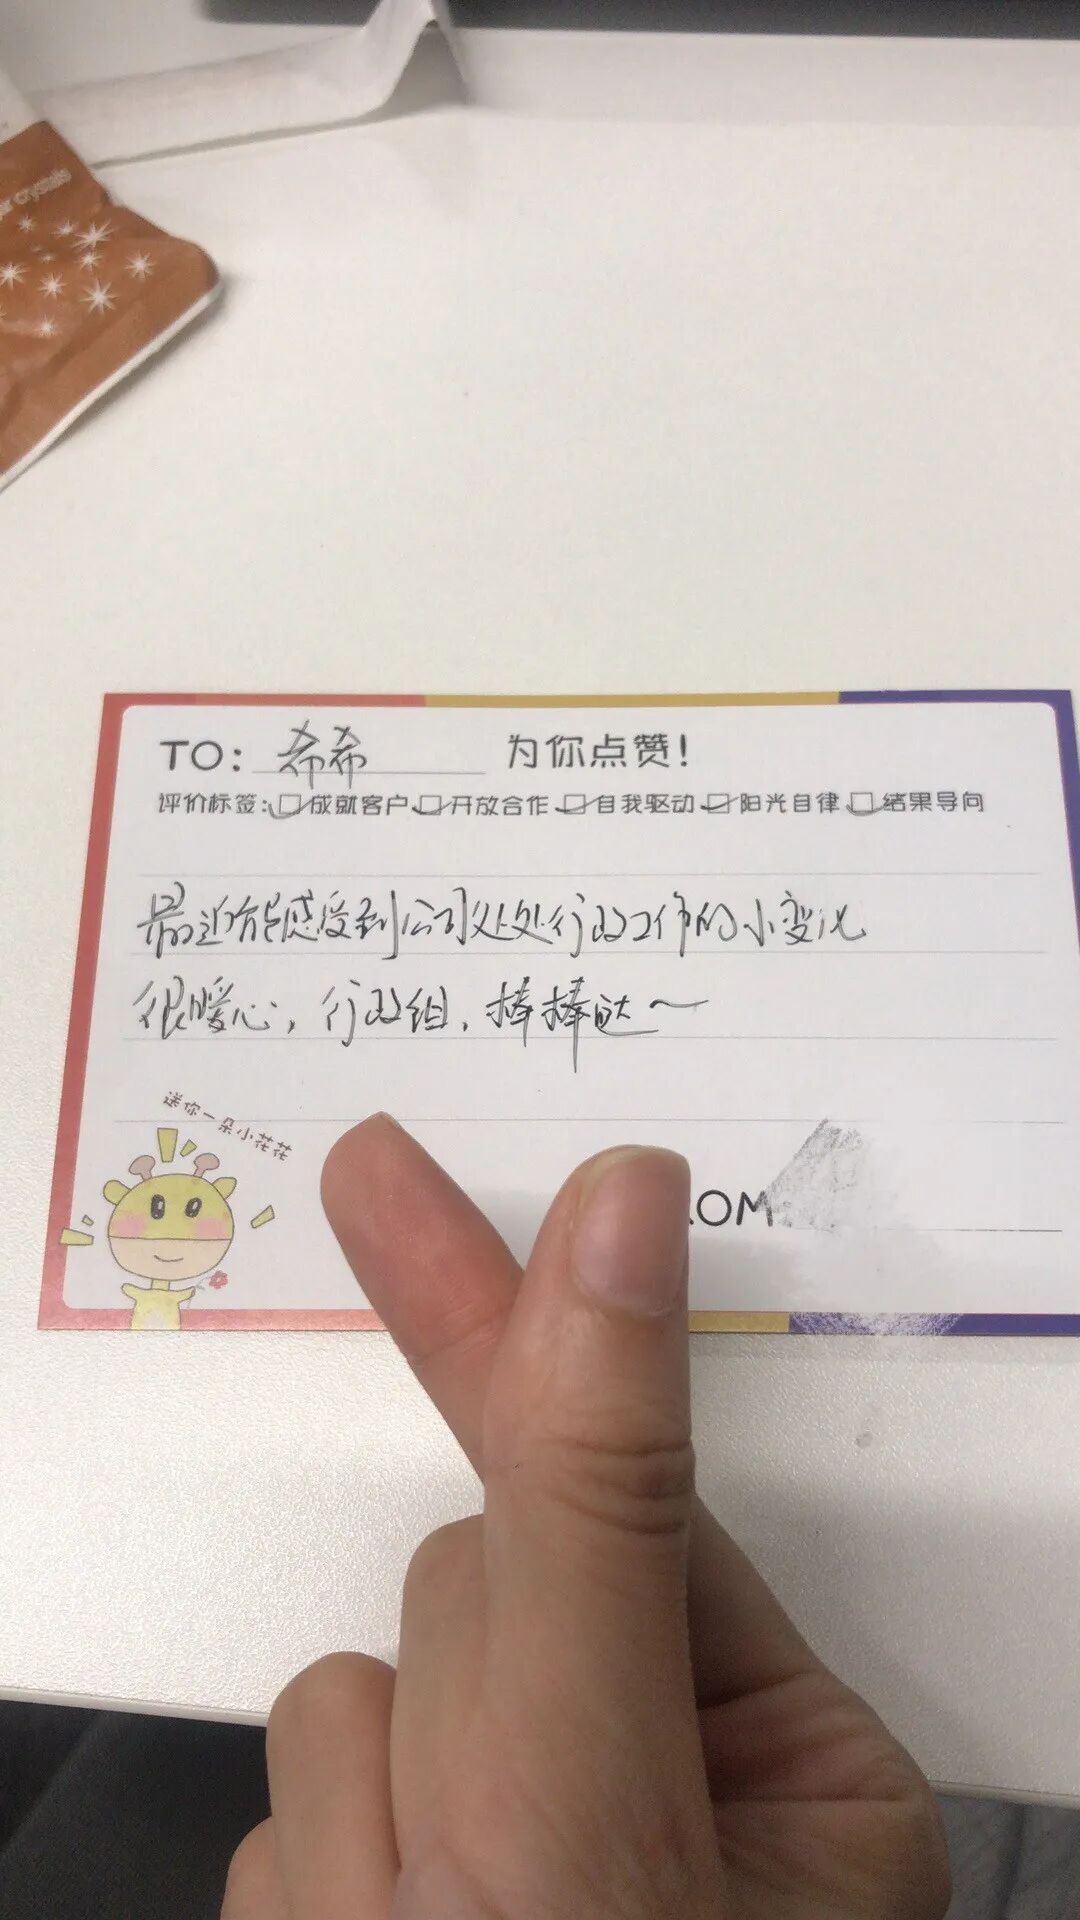 crystals
TO: 希希 为你点赞!
评价标签: 成就客户 开放合作 自我驱动 阳光自律 结果导向
最近能感受到公司处处行政工作的小变化
很暖心, 行政组, 棒棒哒~
送你一朵小花花
OM